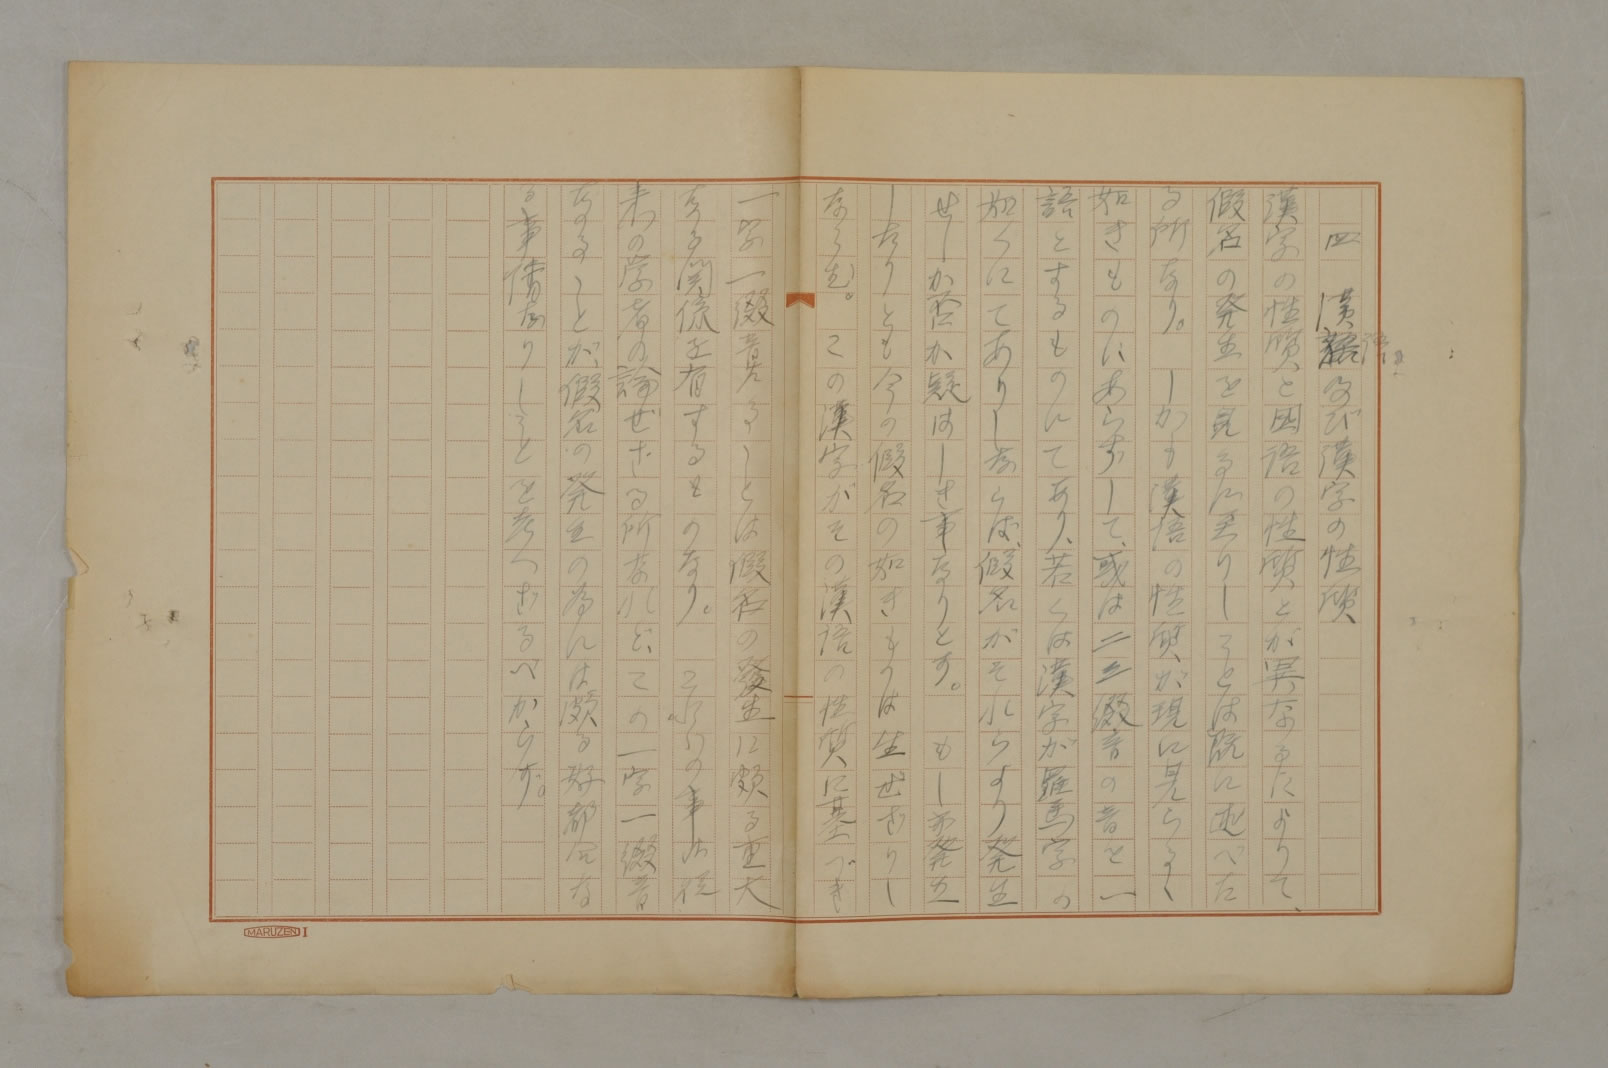 四　漢語及び漢字の性質
漢字の性質と国語の性質とが異なるによりて、
假名の発生を見るに至りしことは既に述べた
る所なり。しかも漢語の性質が現に見らるゝ
如きものにあらずして、或は二三綴音の音を一
語とするものにてあり、若くは漢字が羅馬字の
如くにてありしならば、假名がそれらより発生
せしか否か疑はしき事なりとす。もし又発生
したりとも今の假名の如きものは生ぜざりし
ならむ。この漢字がその漢語の性質に基づき
一字一綴音なることは假名の發生に頗る重大
なる関係を有するものなり。これらの事は従
来の学者の論ぜざる所なれど、この一字一綴音
なることが假名の発生の為には頗る好都合な
る事情なりしことを考へざるべからず。
MARUZEN I